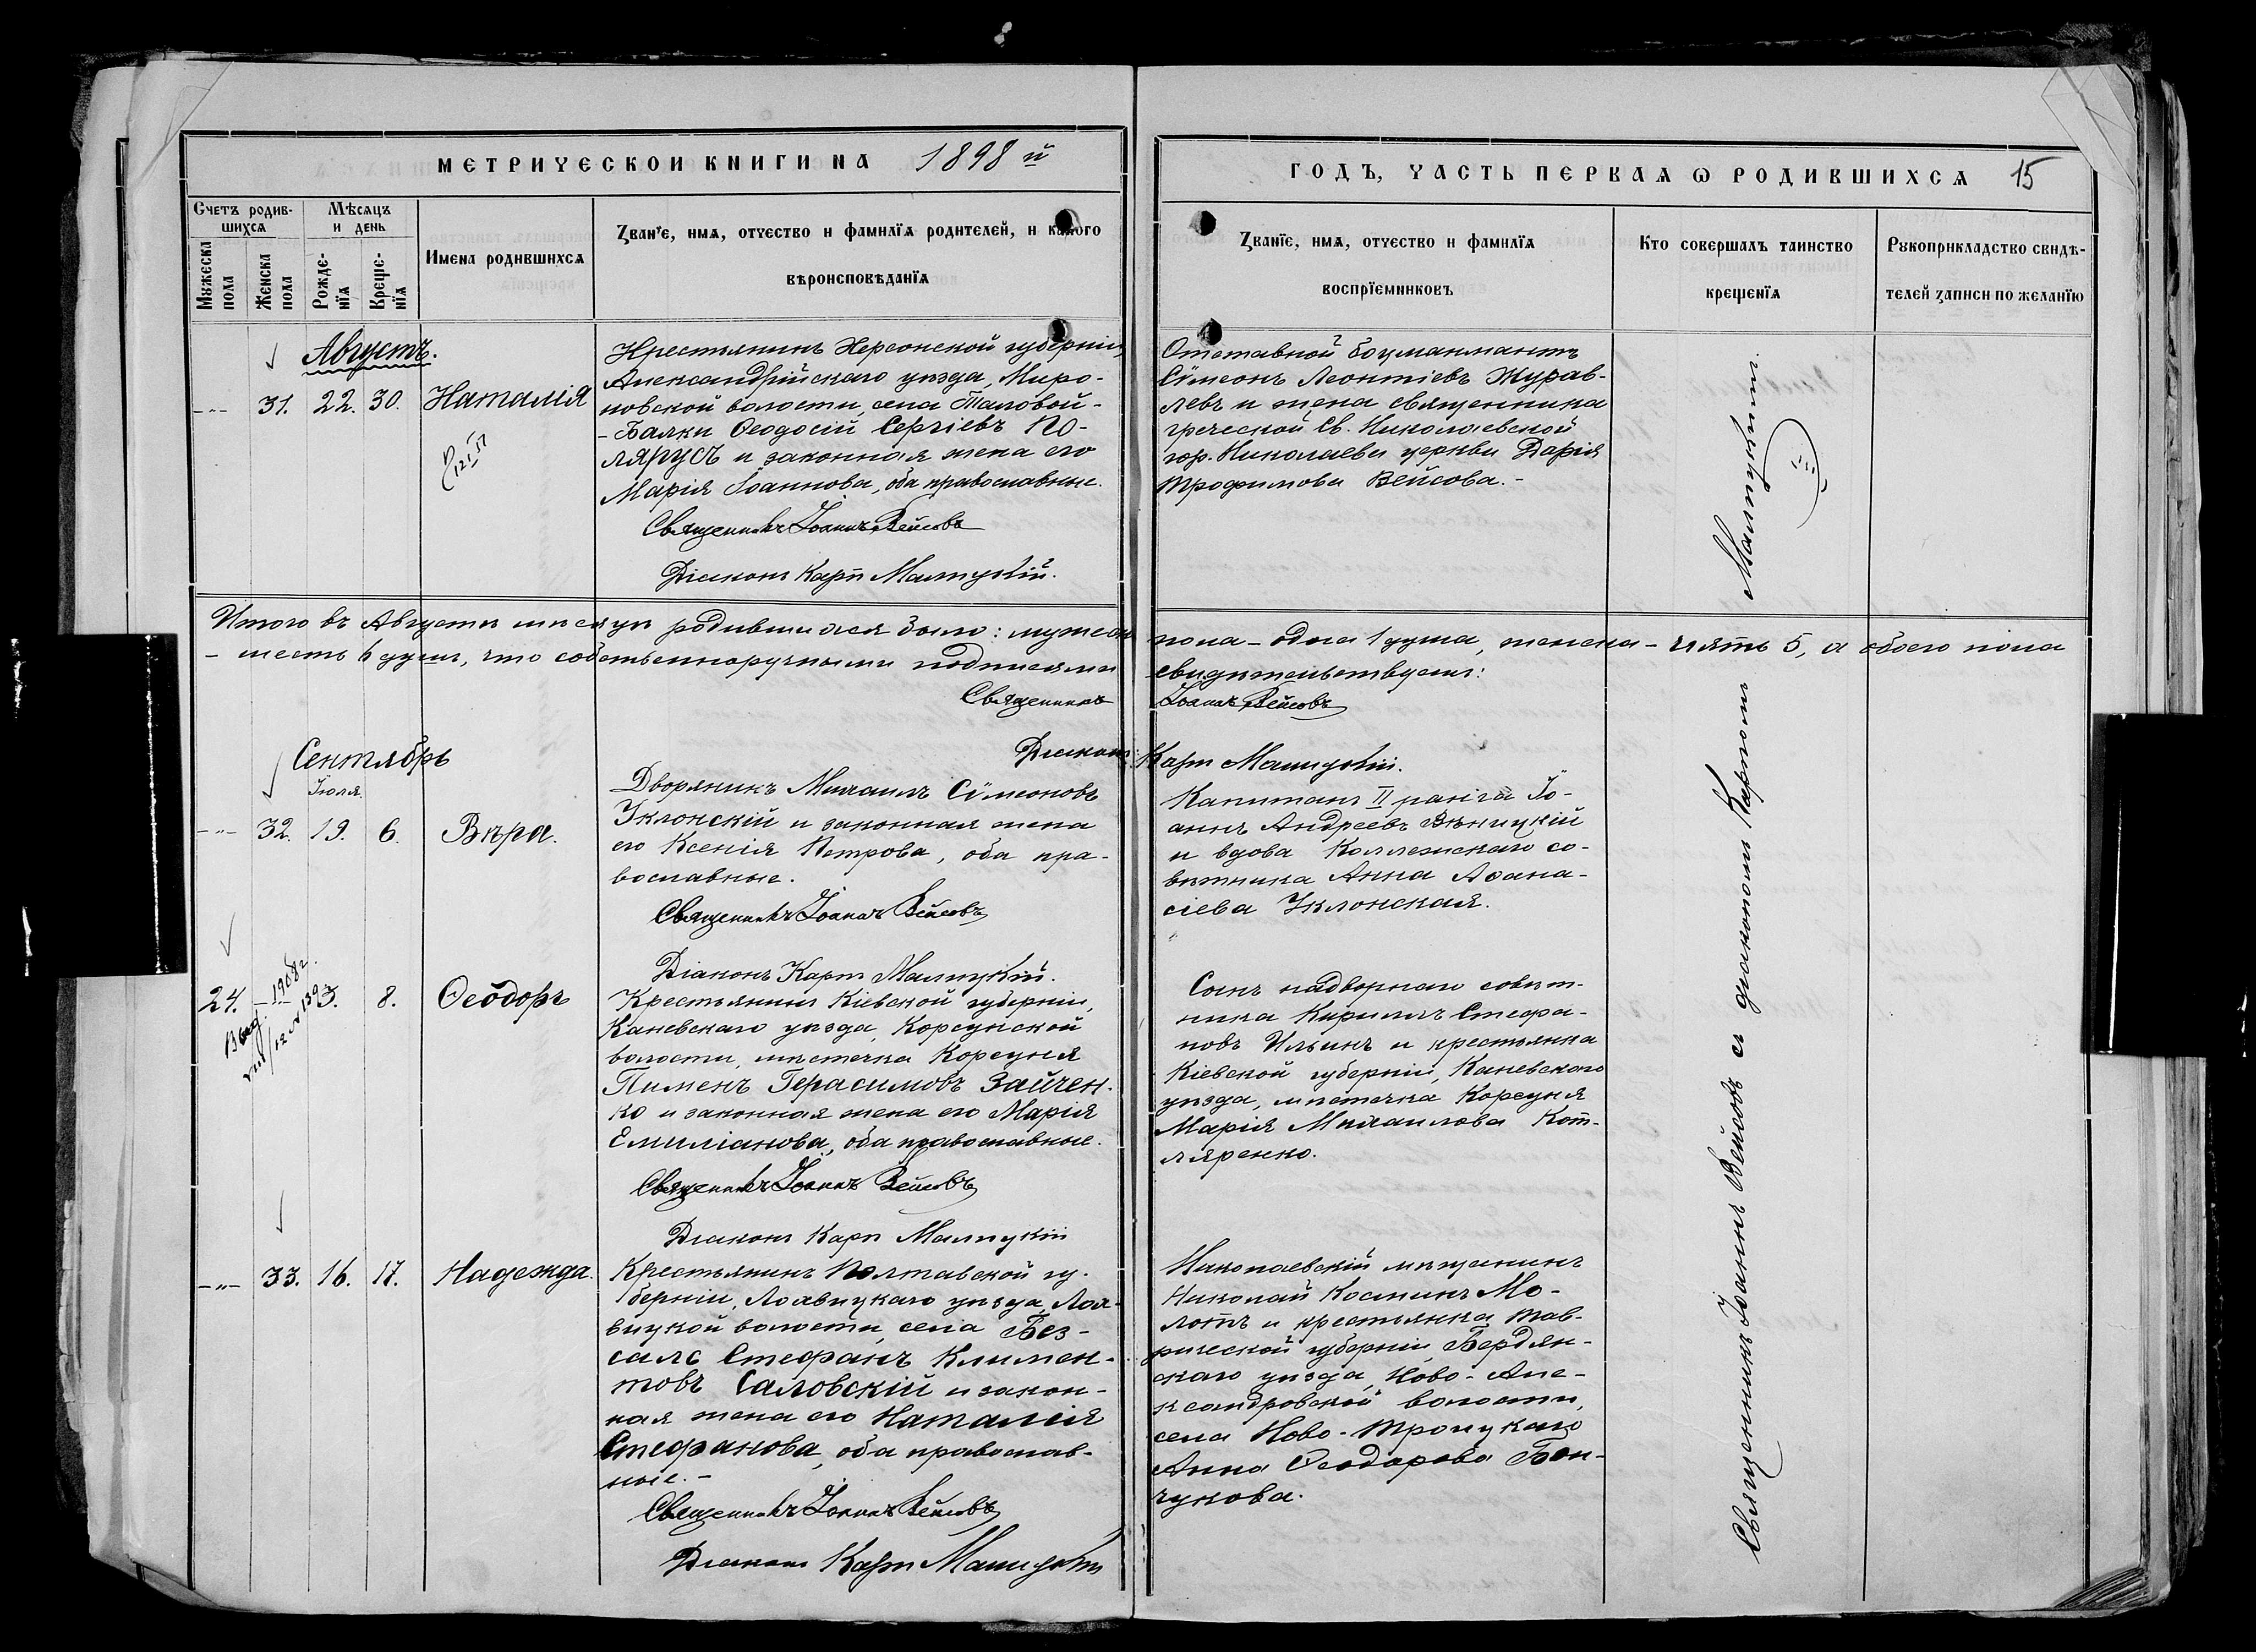 МЕТРИЧЕСКОЙ КНИГИ НА 1898 й
ГОДЪ, ЧАСТЬ ПЕРВАЯ Ѡ РОДИВШИХСЯ 15
Счетъ родив-
шихся
Мужеска пола
Женска пола
Мѣсяцъ и день
Рожде-
нїя
Креще-
нїя
Имена родившихся
Званїе, имя, отчество и фамилїя родителей, и какого
вѣроисповѣданїя
Званїе, имя, отчество и фамилїя
воспрїемниковъ
Кто совершалъ таинство
крещенїя
Рукоприкладство свидѣ-
телей записи по желанїю
Августъ.
-"- 31. 22. 30. Наталія
Крестьянинъ Херсонской губерніи,
Александрійскаго уѣзда, Миро-
новской волости, села Таловой-
-Балки Ѳеодосій Сергіевъ По-
лярусъ и законная жена его
Марія Іоаннова, оба православные.
Священникъ Іоаннъ Вейсовъ
Діаконъ Карпъ Малицкій.
Отставной боцманматъ
Сѵмеонъ Леонтіевъ Журав-
левъ и жена священника
греческой Св. Николаевской
гор. Николаева церкви Дарія
Трофимова Вейсова.-
Итого въ Августѣ мѣсяцѣ родившихся было: мужеска пола - одна 1 душа, женска - пять 5, а обоего пола
- шесть 6 душъ, что собственноручными подписями свидѣтельствуемъ:
Священникъ Іоаннъ Вейсовъ
Діаконъ Карпъ Малицкій.
Сентябрь
Іюля.
-"- 32. 19. 6. Вѣра.
Дворянинъ Михаилъ Сѵмеоновъ
Уклонскій и законная жена
его Ксенія Петрова, оба пра-
вославные.
Священникъ Іоаннъ Вейсовъ
Діаконъ Карпъ Малицкій.
Капитанъ II ранга Іо-
аннъ Андреевъ Вѣницкій
и вдова Коллежскаго со-
вѣтника Анна Аѳана-
сіева Уклонская.
24. -"- 3. 8. Ѳеодоръ
1908 г.
Крестьянинъ Кіевской губерніи,
Каневскаго уѣзда, Корсунской
волости, мѣстечка Корсуня
Пименъ Герасимовъ Зайчен-
ко и законная жена его Марія
Емиліанова, оба православные.
Священникъ Іоаннъ Вейсовъ
Діаконъ Карпъ Малицкій
Сынъ надворнаго совѣт-
ника Кириллъ Стефа-
новъ Ильинъ и крестьянка
Кіевской губерніи, Каневскаго
уѣзда, мѣстечка Корсуня
Марія Михаилова Кот-
ляренко.
-"- 33. 16. 17. Надежда.
Крестьянинъ Полтавской гу-
берніи, Лохвицкаго уѣзда, Лох-
вицкой волости, села Без-
салъ Стефанъ Климен-
товъ Саловскій и закон-
ная жена его Наталія
Стефанова, оба православ-
ные.-
Священникъ Іоаннъ Вейсовъ
Діаконъ Карпъ Малицкій
Николаевскій мѣщанинъ
Николай Космин Мо-
лотъ и крестьянка Тав-
рической губерніи, Бердян-
скаго уѣзда, Ново-Але-
ксандровской волости,
села Ново-Троицкаго
Анна Ѳеодорова Бон-
чукова.
Священникъ Іоаннъ Вейсовъ съ діакономъ Карпомъ Малицкимъ.